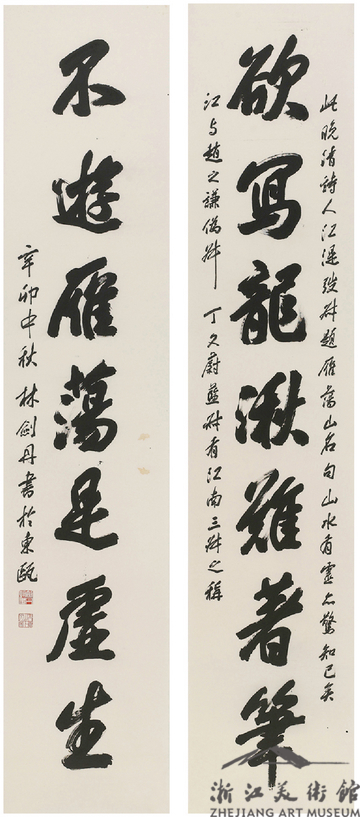 欲寫龍湫難著筆
此晚清詩人江湜弢叔題雁蕩山名句山水有靈亦驚知己矣
江与趙之謙撝叔 丁文蔚藍叔有江南三叔之稱
不遊雁蕩是虛生
辛卯中秋 林劍丹書於東甌
浙江美術館
ZHEJIANG ART MUSEUM